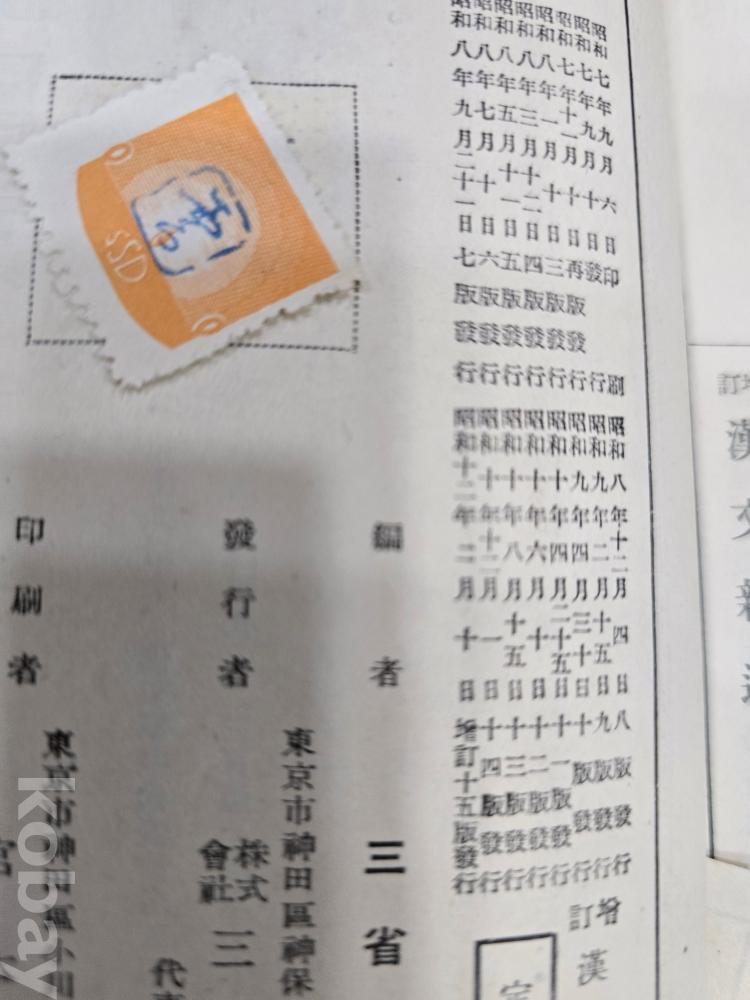 昭和七年九月六日印刷
昭和七年九月十日發行
昭和七年十一月十日再版發行
昭和八年一月十日三版發行
昭和八年三月十二日四版發行
昭和八年五月十一日五版發行
昭和八年七月十日六版發行
昭和八年九月二十一日七版發行
昭和八年十二月四日八版發行
昭和九年二月十五日九版發行
昭和九年四月三十日十版發行
昭和十年四月二十五日十一版發行
昭和十年六月十日十二版發行
昭和十年八月十五日十三版發行
昭和十年十二月一日十四版發行
昭和十二年二月十日增訂十五版發行
增訂
漢
定
編者
三省
發行者
東京市神田區神保
株式會社
三
代
印刷者
東京市神田區小川
SSD
增訂
漢文新
kobay